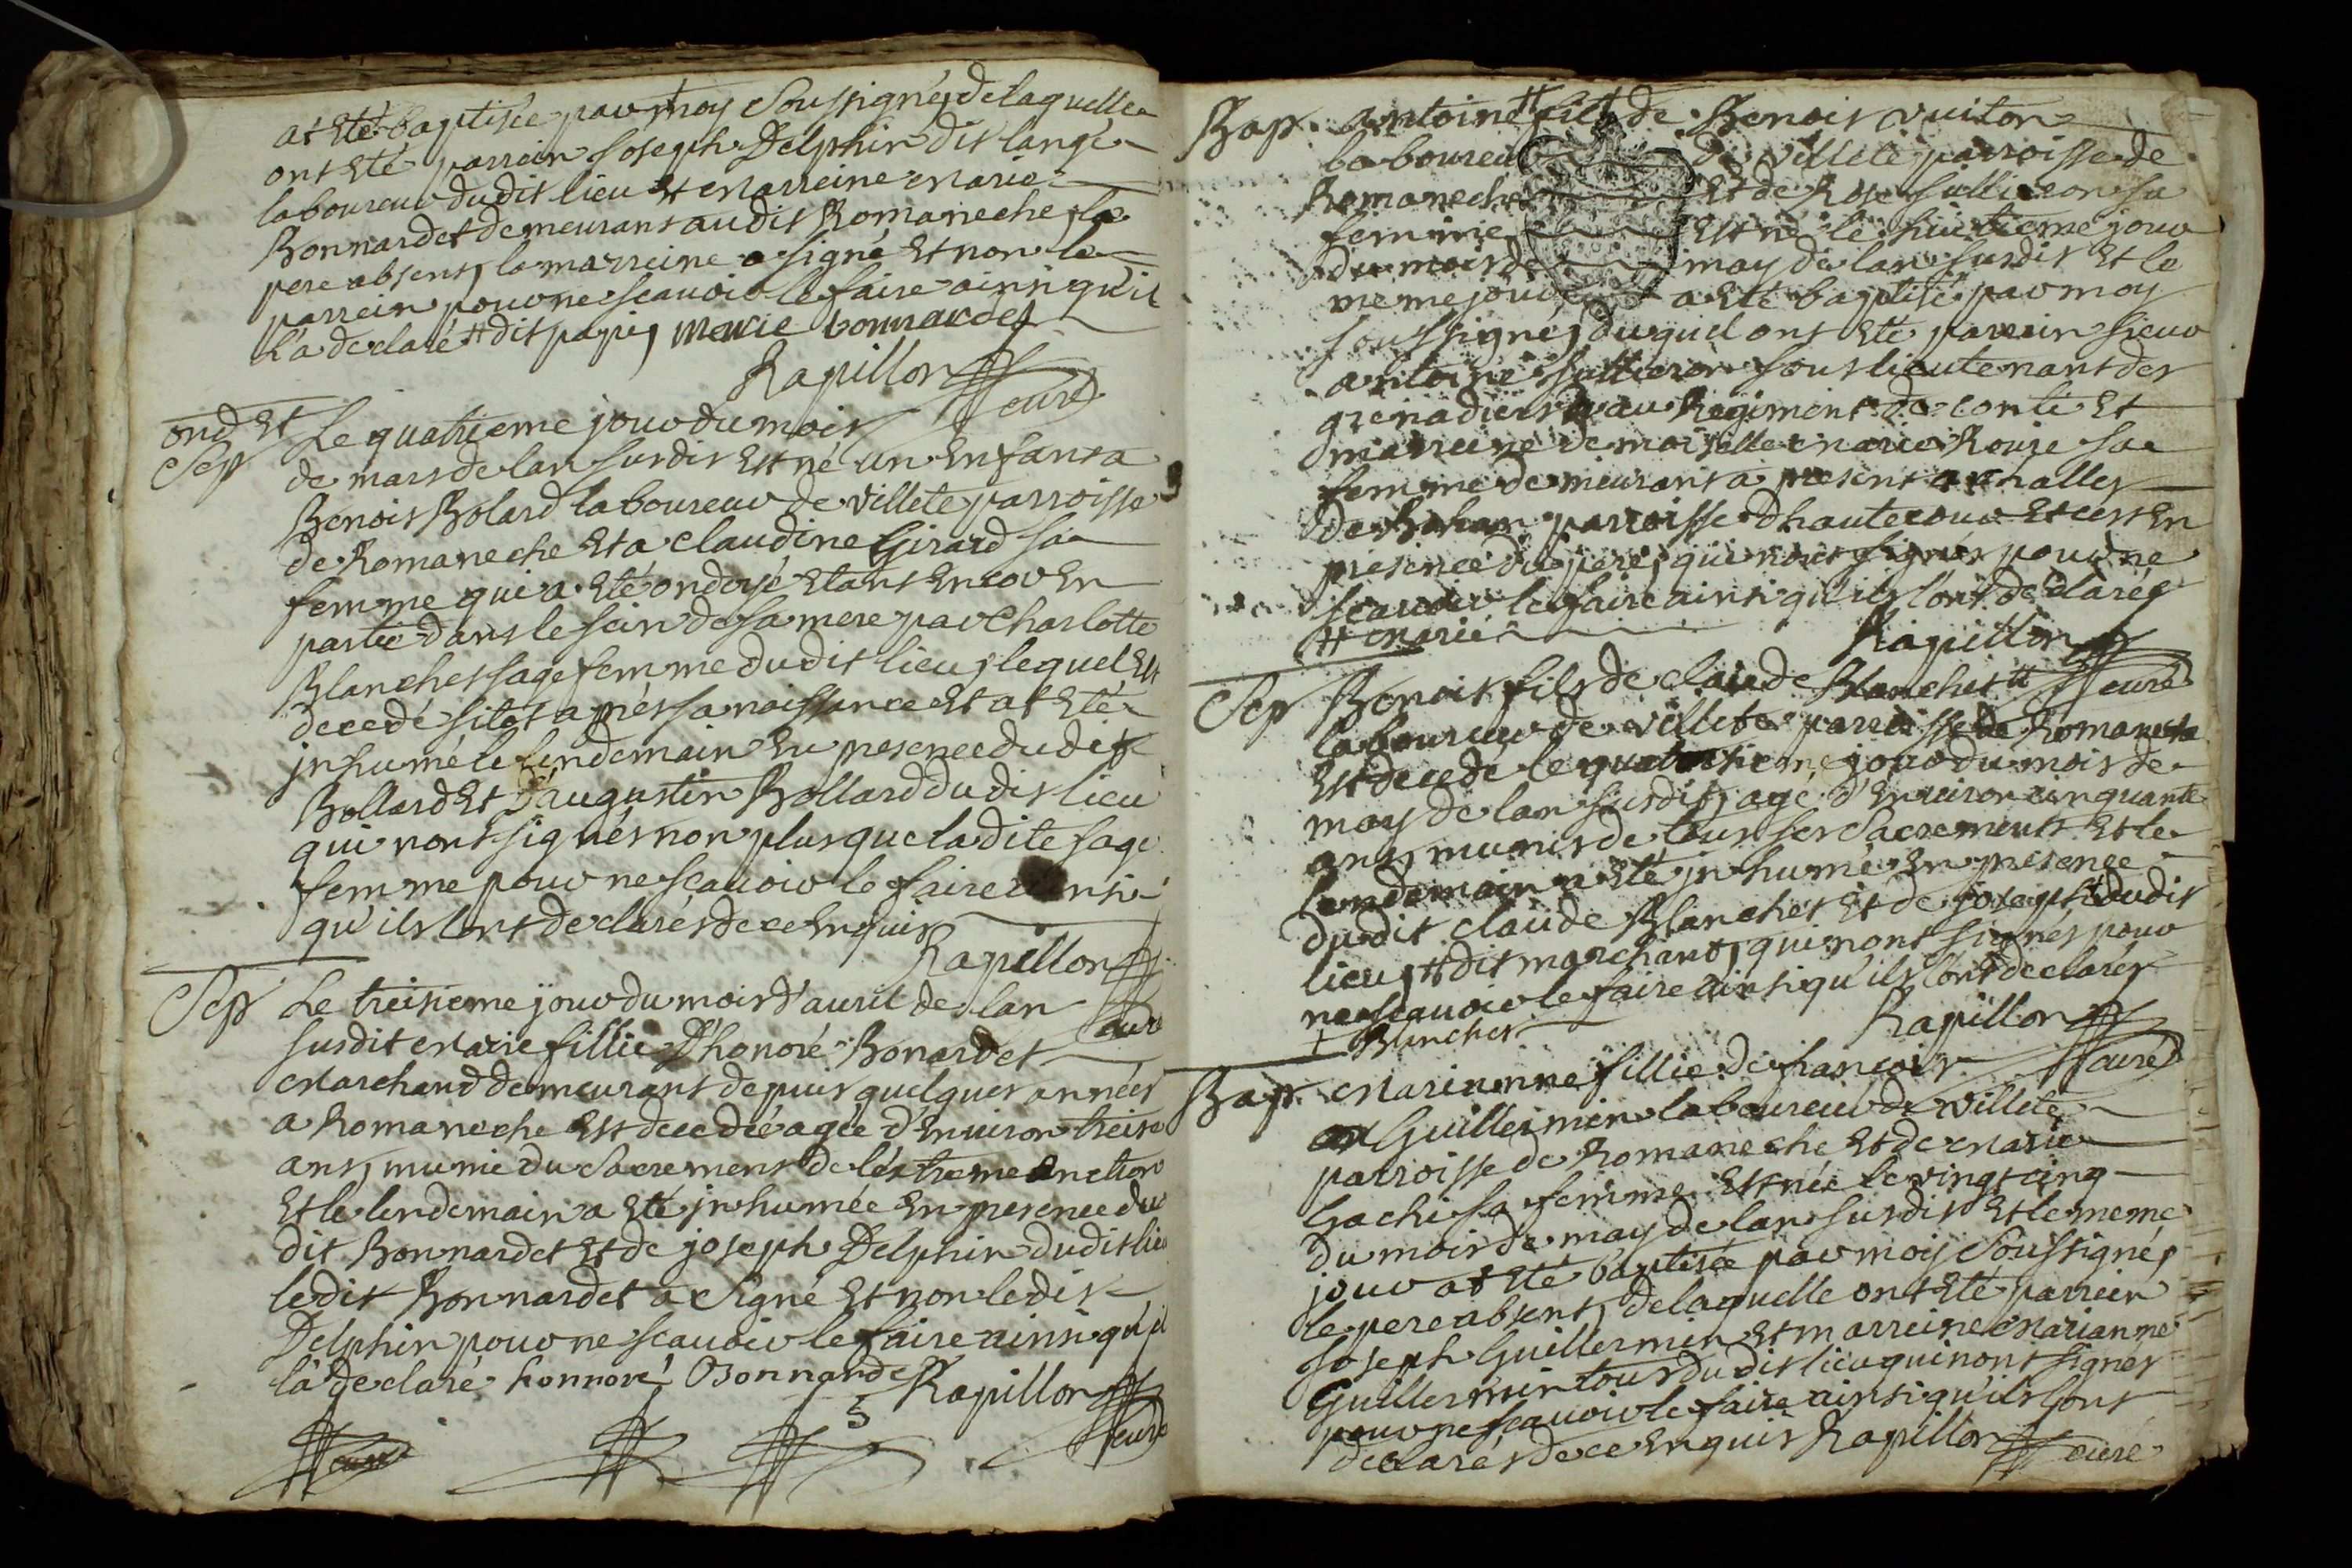 at eté baptisée par moy soussigné, de laquelle
ont eté parrein Joseph Delphin dit langé
laboureur dudit lieu et marreine marie
Bonnardet demeurant audit Romaneche, le
pere absent, la marreine a signé et non le
parrein pour ne scauoir le faire ainsi qu'il
l'a declaré # dit papi, marie bonnardet
Rapillon curé
ond et
Sep
Le quatrieme jour du mois
de mars de lan susdit est né un enfant a
Benoit Bolard laboureur de villete parroisse
de Romaneche et a claudine Girard sa
femme qui a eté ondoyé etant encor en
partie dans le sein de sa mere par Charlotte
Blanchet sage femme dudit lieu, lequel est
decedé sitot aprés sa naissance et at eté
jnhumé le lendemain en presence dudit
Bollard et d'augustin Bollard dudit lieu
qui n'ont signés non plus que ladite sage
femme pour ne scauoir le faire ainsi
qu'ils l'ont declarés de ce enquis
Rapillon curé
Sep Le treisieme jour du mois d'auril de lan
susdit marie fillie d'honoré Bonardet
marchand demeurant depuis quelques années
a Romaneche est decedée agée d'enuiron treise
ans, munie du sacrement de l'extreme onction
et le lendemain a eté jnhumée en presence du
dit Bonnardet et de joseph Delphin dudit lieu
ledit Bonnardet a signé et non ledit
Delphin pour ne scauoir le faire ainsi qu'jl
la declaré honnoré Bonnardet Rapillon
curé
5
curé
Bap. antoine # fils de Benoit vuiton
laboureur de villete parroisse de
Romaneche et de Rose sa
femme est né le huitieme jour
du mois de may de lan susdit et le
meme jour a eté baptisé par moy
soussigné, duquel ont eté parrein sieur
antoine sous lieutenant des
grenadiers au Regiment de conti et
marreine demoiselle marie Rouse sa
femme demeurant a present
de Bohan parroisse d'hautecour et cest en
presence du pere, qui n'ont signés pour ne
scauoir le faire ainsi qu'ils l'ont declarés
# marie
Rapillon
curé
Sep Benoit fils de claude Blanchet #
laboureur de villete parroisse de Romaneche
est decedé le quatorsieme jour du mois de
may de lan susdit, agé d'enuiron cinquante
ans, munis de tous ses sacrements et le
lendemain a eté jnhumé en presence
dudit claude Blanchet et de joseph + dudit
lieu, # dit marchand, qui n'ont signés pour
ne scauoir le faire ainsi qu'ils l'ont declarés
+ Blanchet
Rapillon
curé
Bap. Marianne fillie de francois
Guillermin laboureur de villete
parroisse de Romaneche et de marie
Gachi sa femme est née le vingt cinq
du mois de may de lan susdit et le meme
jour at eté baptisée par moy soussigné,
le pere absent, de laquelle ont eté parrein
Joseph Guillermin et marreine marianne
Guillermin tous dudit lieu qui n'ont signés
pour ne scauoir le faire ainsi qu'ils l'ont
declarés de ce enquis Rapillon curé